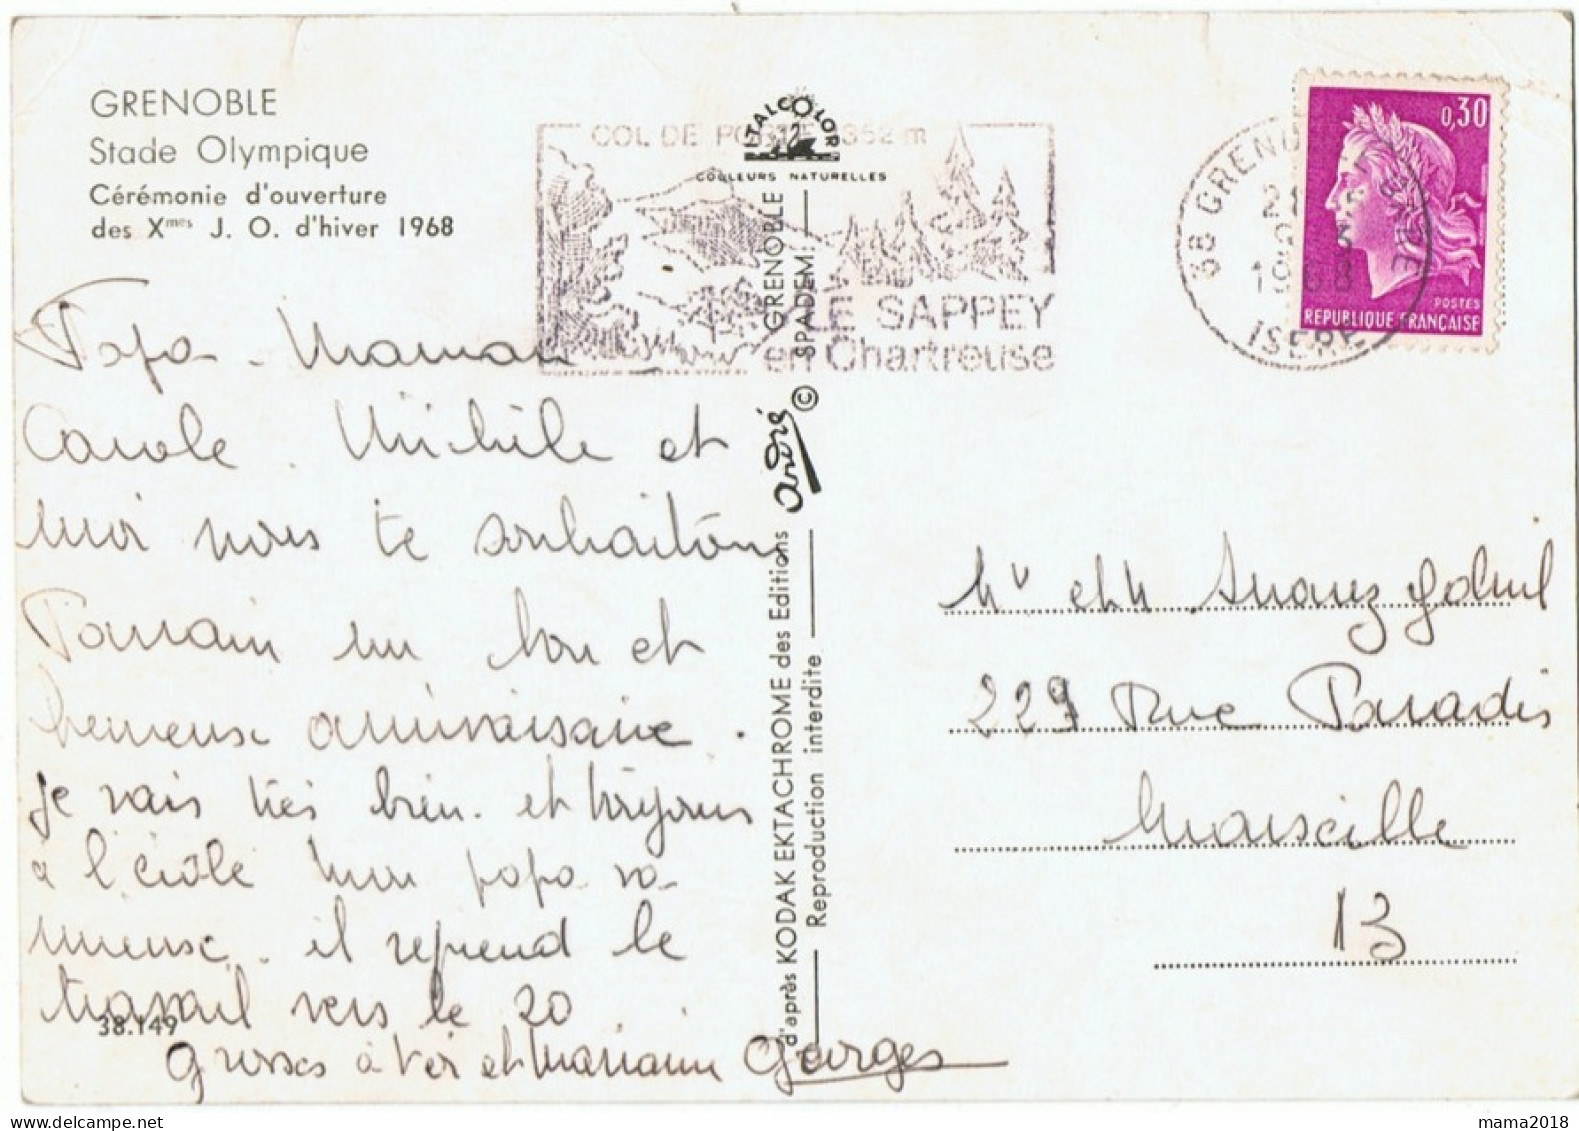 GRENOBLE
Stade Olympique
Cérémonie d'ouverture
des Xmes J. O. d'hiver 1968
Papa - Maman
Carole. Michèle et
moi nous te souhaitons
Parrain un bon et
heureuse anniversaire.
je vais très bien. et toujours
à l'école mon papa va
mieux. il reprend le
travail vers le 20
38.149
grosses à toi et Mariann Georges
TALCOLOR
COULEURS NATURELLES
COL DE PORTE 1352 m
LE SAPPEY
en Chartreuse
d'après KODAK EKTACHROME des Editions André GRENOBLE
Reproduction interdite © SPADEM
38 GRENOBLE GARE
1968
ISERE
0,30
POSTES
REPUBLIQUE FRANÇAISE
Mr et M Suarez
229 Rue Paradis
Marseille
13
mama2018